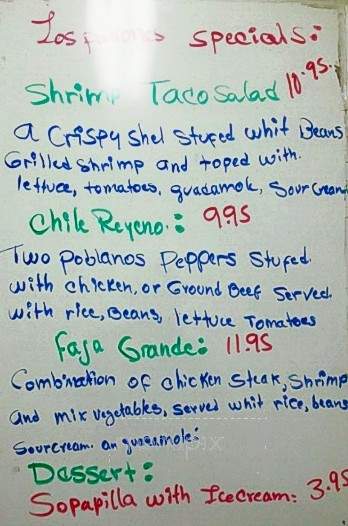 Los specials:
Shrimp Taco Salad 10.95.
a Crispy Shel Stufed whit Beans
Grilled Shrimp and toped with.
lettuce, tomatoes, guacamole, Sour Cream
Chile Reyeno.: 9.95
Two Poblanos Peppers Stufed.
with chicken, or Ground Beef Served.
with rice, Beans, lettuce Tomatoes
Faja Grande: 11.95
Combination of chicken Steak, Shrimp
and mix vegetables, served whit rice, beans
Sourcream. an guacamole:
Dessert:
Sopapilla with Icecream: 3.95